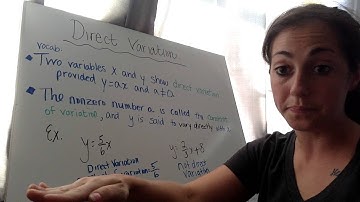 Direct Variation
Vocab:
• Two variables x and y show direct variation
provided y=ax and a≠0
• The nonzero number a is called the constant
of variation, and y is said to vary directly with x.
Ex.
y=5/6x
y=2/3x+8
Direct Variation
of variation 5/6
not direct
variation